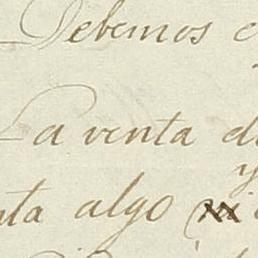 Debemos
La venta d
y
nta algo